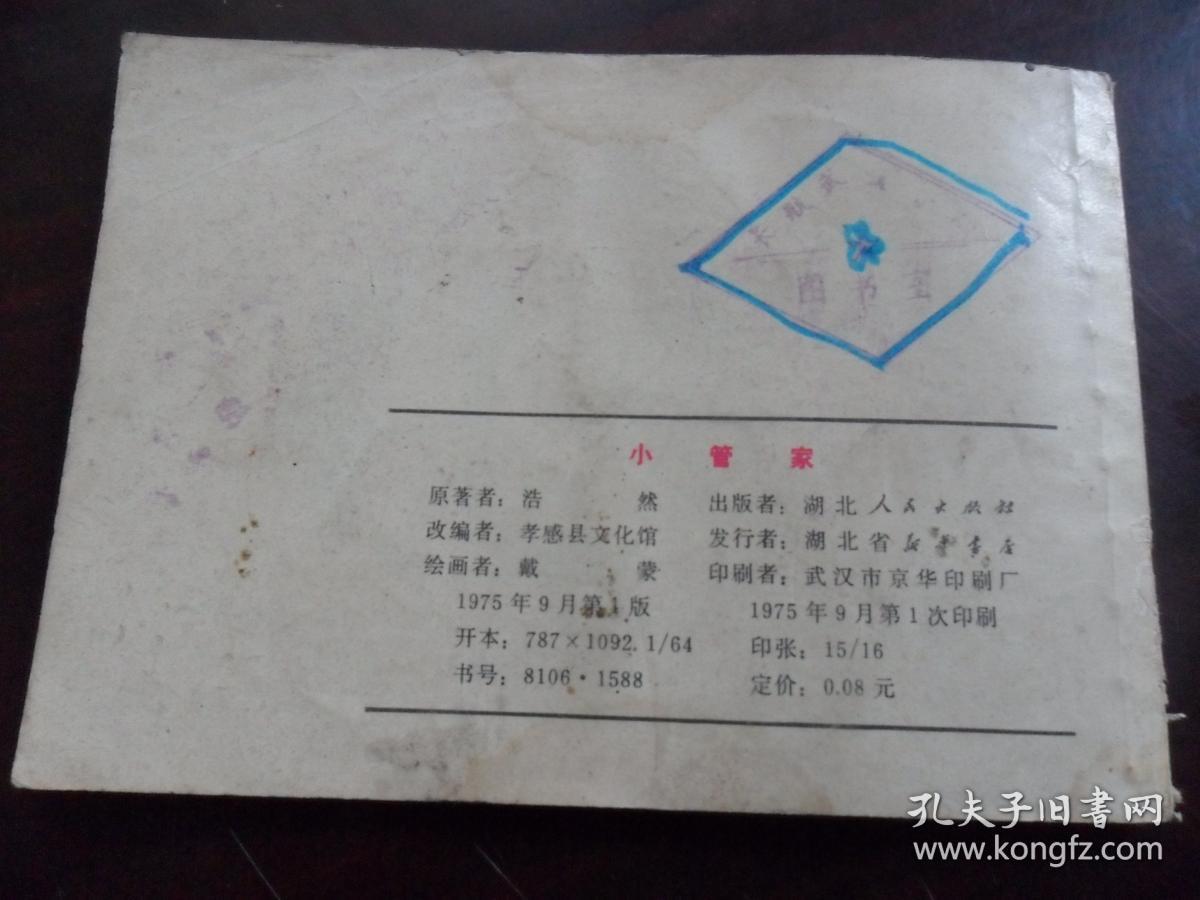 图书室
小管家
原著者：浩然
改编者：孝感县文化馆
绘画者：戴蒙
1975年9月第1版
开本：787×1092.1/64
书号：8106·1588
出版者：湖北人民出版社
发行者：湖北省新华书店
印刷者：武汉市京华印刷厂
1975年9月第1次印刷
印张：15/16
定价：0.08元
孔夫子旧书网
www.kongfz.com